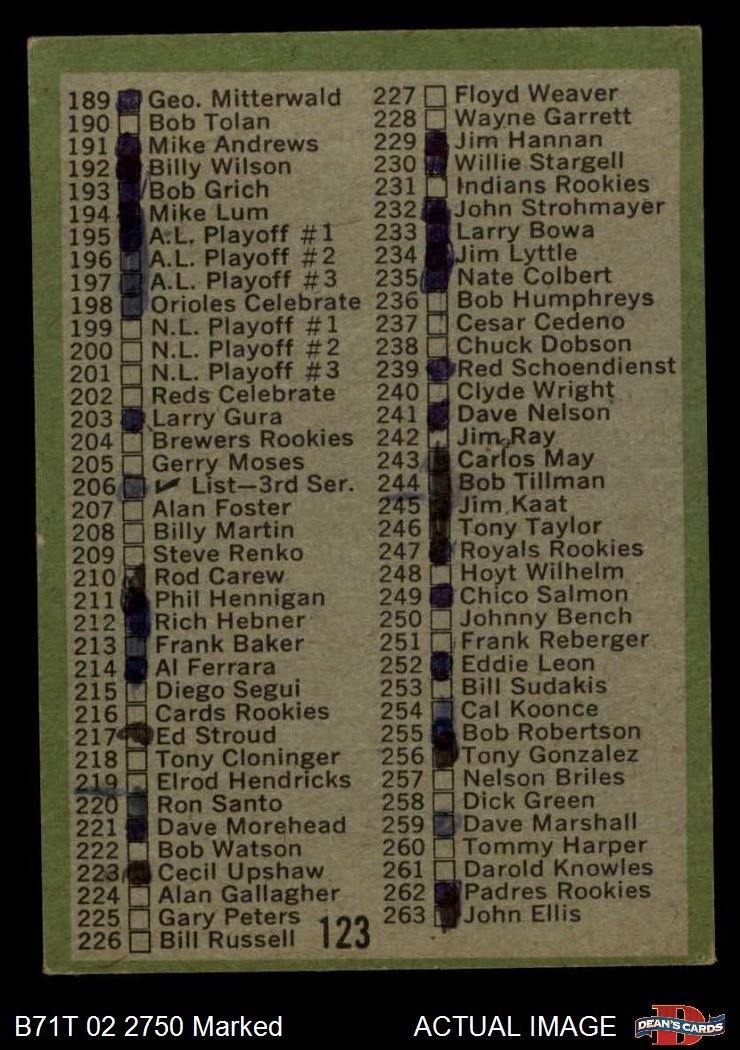 189 Geo. Mitterwald
190 Bob Tolan
191 Mike Andrews
192 Billy Wilson
193 Bob Grich
194 Mike Lum
195 A.L. Playoff #1
196 A.L. Playoff #2
197 A.L. Playoff #3
198 Orioles Celebrate
199 N.L. Playoff #1
200 N.L. Playoff #2
201 N.L. Playoff #3
202 Reds Celebrate
203 Larry Gura
204 Brewers Rookies
205 Gerry Moses
206 ✓ List—3rd Ser.
207 Alan Foster
208 Billy Martin
209 Steve Renko
210 Rod Carew
211 Phil Hennigan
212 Rich Hebner
213 Frank Baker
214 Al Ferrara
215 Diego Segui
216 Cards Rookies
217 Ed Stroud
218 Tony Cloninger
219 Elrod Hendricks
220 Ron Santo
221 Dave Morehead
222 Bob Watson
223 Cecil Upshaw
224 Alan Gallagher
225 Gary Peters
226 Bill Russell
123
227 Floyd Weaver
228 Wayne Garrett
229 Jim Hannan
230 Willie Stargell
231 Indians Rookies
232 John Strohmayer
233 Larry Bowa
234 Jim Lyttle
235 Nate Colbert
236 Bob Humphreys
237 Cesar Cedeno
238 Chuck Dobson
239 Red Schoendienst
240 Clyde Wright
241 Dave Nelson
242 Jim Ray
243 Carlos May
244 Bob Tillman
245 Jim Kaat
246 Tony Taylor
247 Royals Rookies
248 Hoyt Wilhelm
249 Chico Salmon
250 Johnny Bench
251 Frank Reberger
252 Eddie Leon
253 Bill Sudakis
254 Cal Koonce
255 Bob Robertson
256 Tony Gonzalez
257 Nelson Briles
258 Dick Green
259 Dave Marshall
260 Tommy Harper
261 Darold Knowles
262 Padres Rookies
263 John Ellis
B71T 02 2750 Marked
ACTUAL IMAGE
D
DEAN'S CARDS